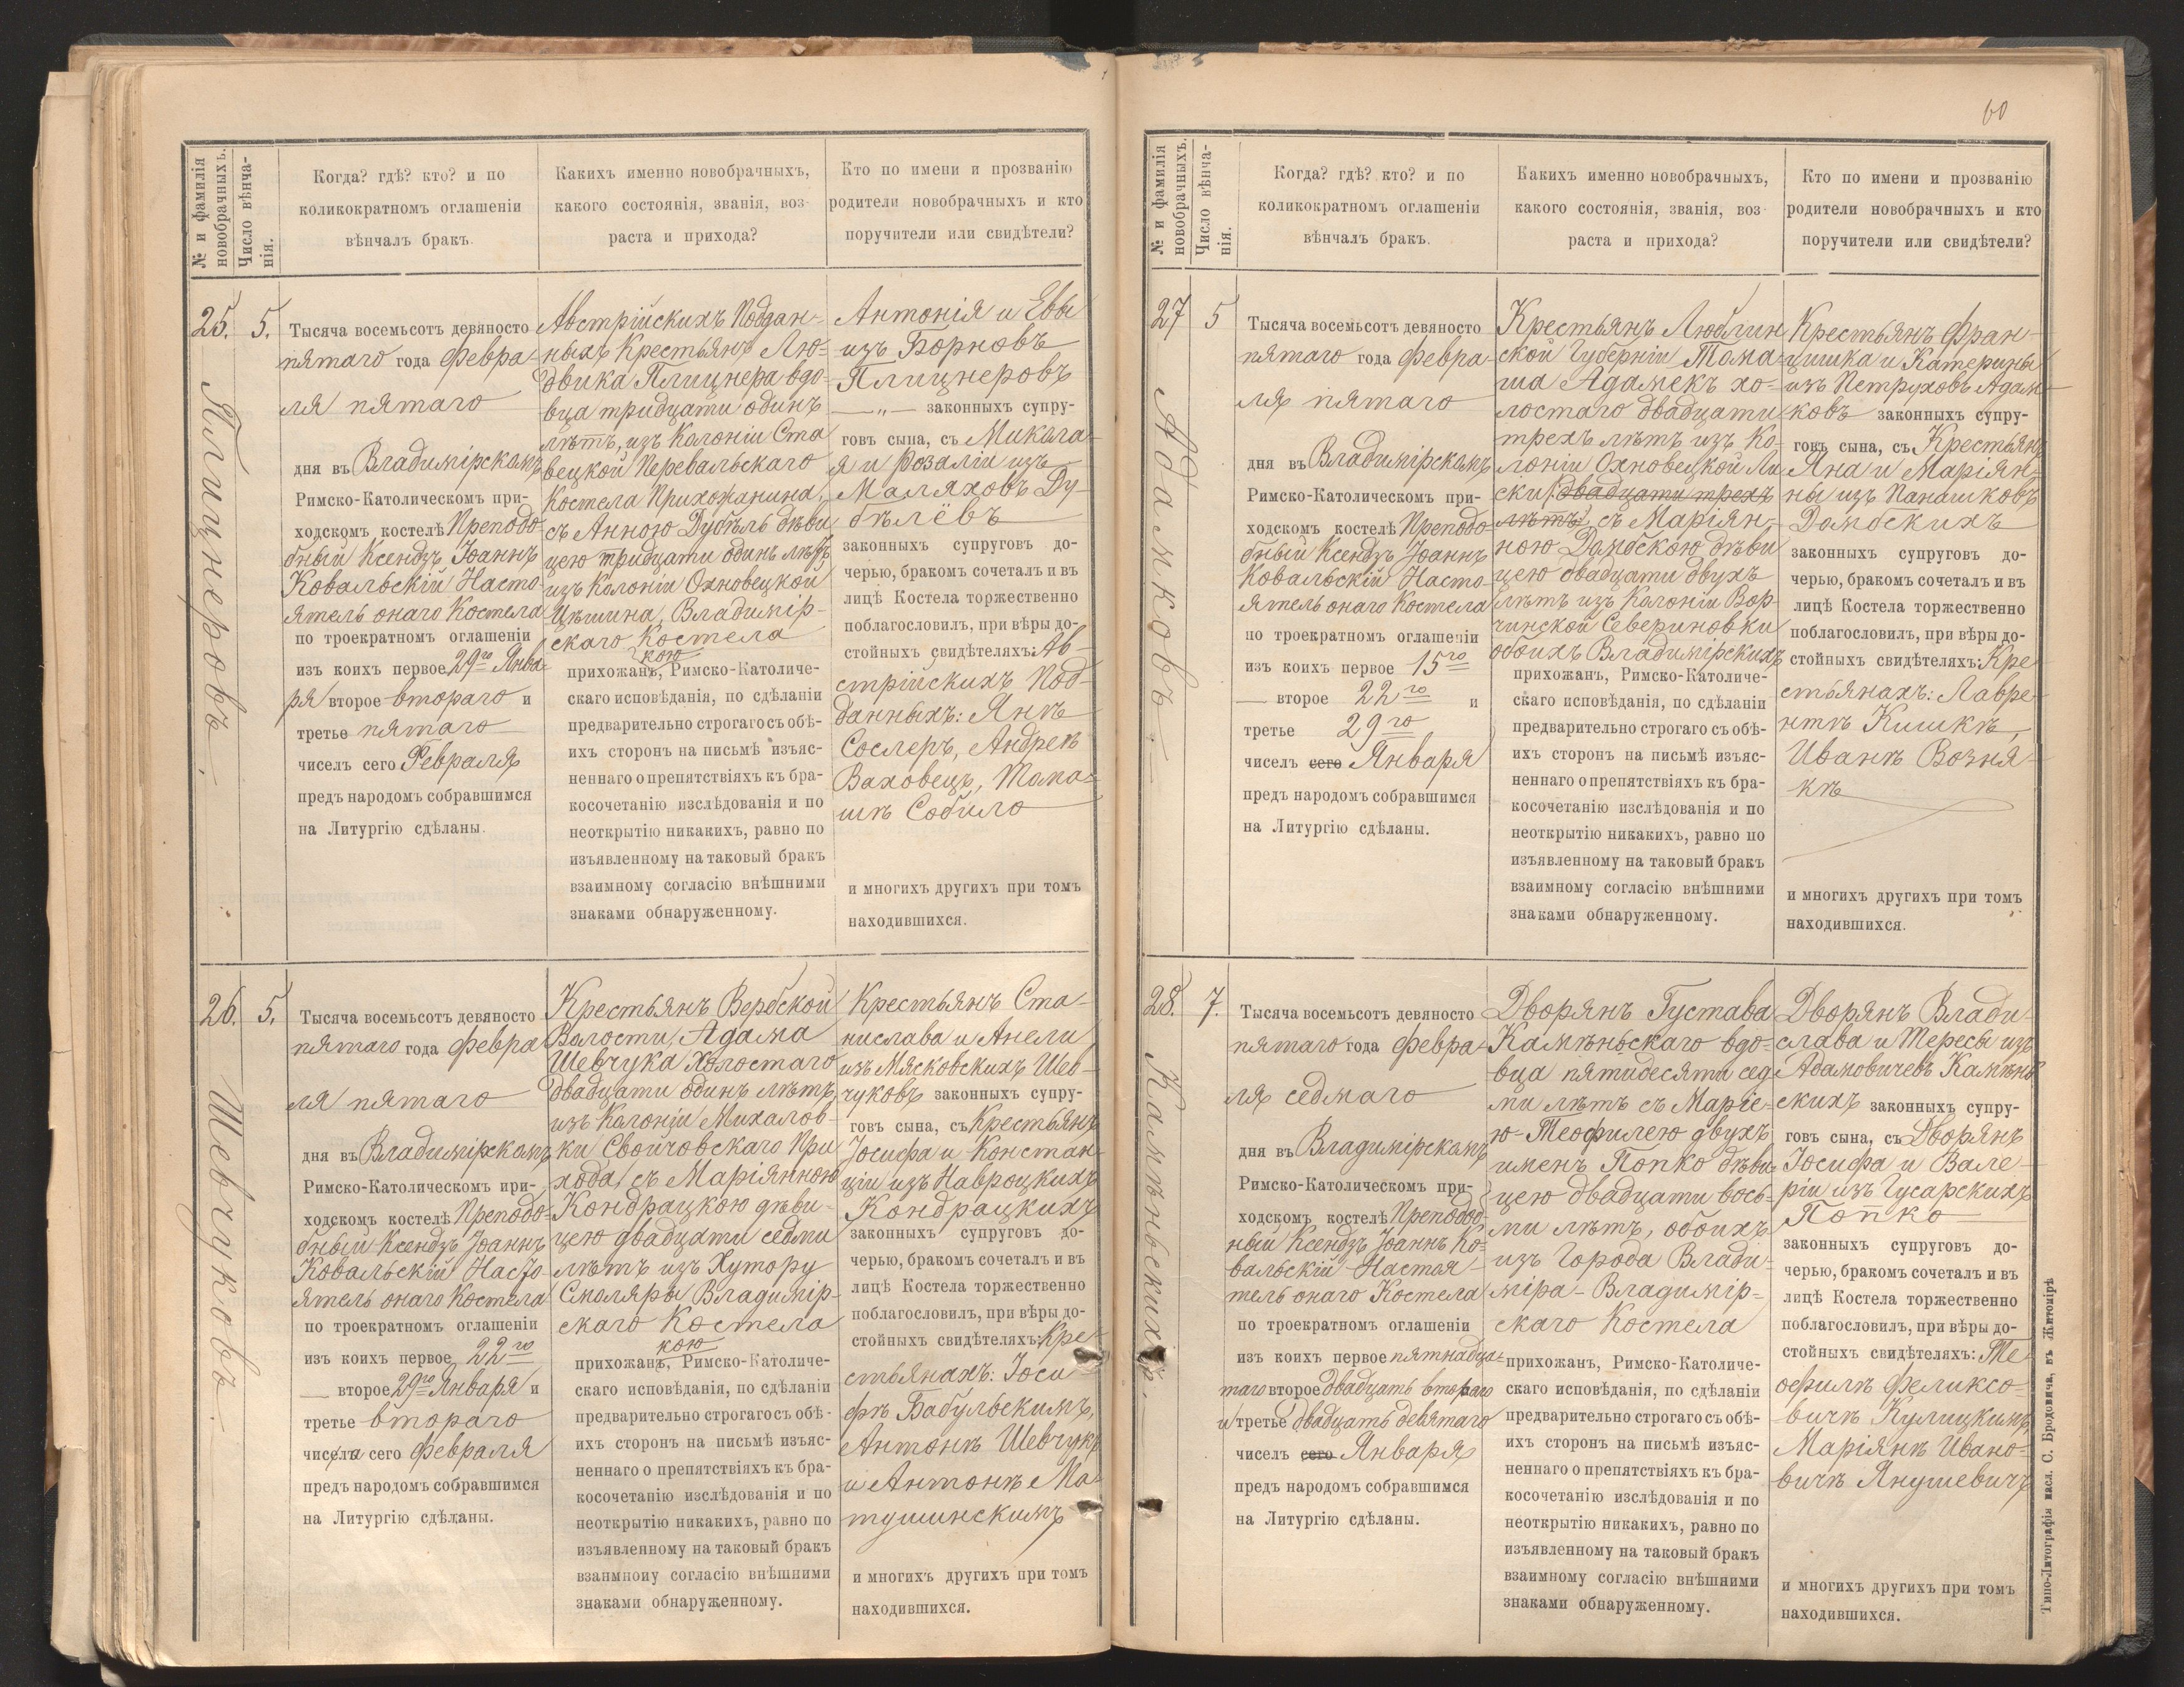 № и фамилія новобрачныхъ.
Число вѣнча-
нія.
Когда? гдѣ? кто? и по
коликократномъ оглашеніи
вѣнчалъ бракъ.
Какихъ именно новобрачныхъ,
какого состоянія, званія, воз-
раста и прихода?
Кто по имени и прозванію
родители новобрачныхъ и кто
поручители или свидѣтели?
25.
Плицнеровъ.
5.
Тысяча восемьсотъ девяносто
пятаго года Февра-
ля пятаго
дня въ Владимірскомъ
Римско-Католическомъ при-
ходскомъ костелѣ Преподо-
бный Ксендзъ Іоаннъ
Ковальскій Насто-
ятель онаго Костела
по троекратномъ оглашеніи
изъ коихъ первое 29го Янва-
ря второе втораго и
третье пятаго
чиселъ сего Февраля
предъ народомъ собравшимся
на Литургію сдѣланы.
Австрійскихъ Поддан-
ныхъ Крестьянъ Лю-
двика Плицнера вдо-
вца тридцати одинъ
лѣтъ, изъ Колоніи Ста
вецкой Перевальскаго
Костела Прихожанина,
съ Анною Дубѣль дѣви
цею тридцати одинъ лѣтъ
изъ Колоніи Охновецкой
Цѣшина, Владимір-
скаго Костела
кою
прихожанъ, Римско-Католиче-
скаго исповѣданія, по сдѣланіи
предварительно строгаго съ обѣ-
ихъ сторонъ на письмѣ изъяс-
неннаго о препятствіяхъ къ бра-
косочетанію изслѣдованія и по
неоткрытію никакихъ, равно по
изъявленному на таковый бракъ
взаимному согласію внѣшними
знаками обнаруженному.
Антонія и Евы
изъ Борновъ
Плицнеровъ
— „ — законныхъ супру-
говъ сына, съ Микола-
я и Розаліи изъ
Маляховъ Ду-
бѣлёвъ
законныхъ супруговъ до-
черью, бракомъ сочеталъ и въ
лицѣ Костела торжественно
поблагословилъ, при вѣры до-
стойныхъ свидѣтеляхъ: Ав-
стрійскихъ Под-
данныхъ: Янѣ
Сослеръ, Андреѣ
Ваховецъ, Тома-
шѣ Собило
и многихъ другихъ при томъ
находившихся.
26.
Шевчуковъ.
5.
Тысяча восемьсотъ девяносто
пятаго года Февра
ля пятаго
дня въ Владимірскомъ
Римско-Католическомъ при-
ходскомъ костелѣ Преподо-
бный Ксендзъ Іоаннъ
Ковальскій Насто-
ятель онаго Костела
по троекратномъ оглашеніи
изъ коихъ первое 22го
— второе 29го Января и
третье втораго
числа сего Февраля
предъ народомъ собравшимся
на Литургію сдѣланы.
Крестьянъ Вербской
Волости, Адама
Шевчука холостаго
двадцати одинъ лѣтъ
изъ Колоніи Михалов-
ки Свойчовскаго При
хода, съ Маріянною
Кондрацкою дѣви-
цею двадцати седми
лѣтъ изъ Хутору
Смоляры Владимір-
скаго Костела
кою
прихожанъ, Римско-Католиче-
скаго исповѣданія, по сдѣланіи
предварительно строгаго съ обѣ-
ихъ сторонъ на письмѣ изъяс-
неннаго о препятствіяхъ къ бра-
косочетанію изслѣдованія и по
неоткрытію никакихъ, равно по
изъявленному на таковый бракъ
взаимному согласію внѣшними
знаками обнаруженному.
Крестьянъ Ста-
нислава и Анели
изъ Мясковскихъ Шев-
чуковъ законныхъ супру-
говъ сына, съ Крестьянъ
Іосифа и Констан-
ціи изъ Навроцкихъ
Кондрацкихъ
законныхъ супруговъ до-
черью, бракомъ сочеталъ и въ
лицѣ Костела торжественно
поблагословилъ, при вѣры до-
стойныхъ свидѣтеляхъ: Кре-
стьянахъ: Іоси-
фѣ Бабульскимъ,
Антонѣ Шевчукъ
и Антонѣ Ма-
тушинскимъ
и многихъ другихъ при томъ
находившихся.
60
№ и фамилія новобрачныхъ.
Число вѣнча-
нія.
Когда? гдѣ? кто? и по
коликократномъ оглашеніи
вѣнчалъ бракъ.
Какихъ именно новобрачныхъ,
какого состоянія, званія, воз-
раста и прихода?
Кто по имени и прозванію
родители новобрачныхъ и кто
поручители или свидѣтели?
27
Адамковъ.
5
Тысяча восемьсотъ девяносто
пятаго года Февра-
ля пятаго
дня въ Владимірскомъ
Римско-Католическомъ при-
ходскомъ костелѣ Преподо-
бный Ксендзъ Іоаннъ
Ковальскій Насто-
ятель онаго Костела
по троекратномъ оглашеніи
изъ коихъ первое 15го
— второе 22го и
третье 29го
чиселъ сего Января
предъ народомъ собравшимся
на Литургію сдѣланы.
Крестьянъ Люблин
ской Губерніи Тома-
ша Адамекъ хо-
лостаго двадцати
трехъ лѣтъ изъ Ко-
лоніи Охновецкой Ли
ски двадцати трехъ
лѣтъ съ Маріян-
ною Домбскою дѣви
цею двадцати двухъ
лѣтъ изъ Колоніи Вор-
чинской Севериновки
обоихъ Владимірскихъ
прихожанъ, Римско-Католиче-
скаго исповѣданія, по сдѣланіи
предварительно строгаго съ обѣ-
ихъ сторонъ на письмѣ изъяс-
неннаго о препятствіяхъ къ бра-
косочетанію изслѣдованія и по
неоткрытію никакихъ, равно по
изъявленному на таковый бракъ
взаимному согласію внѣшними
знаками обнаруженному.
Крестьянъ Фран-
цишка и Катерины
изъ Петруховъ Адам-
ковъ законныхъ супру-
говъ сына, съ Крестьянъ
Яна и Маріян-
ны изъ Панашковъ
Домбскихъ
законныхъ супруговъ до-
черью, бракомъ сочеталъ и въ
лицѣ Костела торжественно
поблагословилъ, при вѣры до-
стойныхъ свидѣтеляхъ: Кре
стьянахъ: Лавре-
нтѣ Кишкѣ,
Иванѣ Возня-
кѣ
и многихъ другихъ при томъ
находившихся.
28.
Камѣньскихъ.
7.
Тысяча восемьсотъ девяносто
пятаго года Февра-
ля седмаго
дня въ Владимірскомъ
Римско-Католическомъ при-
ходскомъ костелѣ Преподоб-
ный Ксендзъ Іоаннъ Ко-
вальскій Настоя-
тель онаго Костела
по троекратномъ оглашеніи
изъ коихъ первое пятнадца-
таго второе двадцать втораго
и третье двадцать девятаго
чиселъ сего Января
предъ народомъ собравшимся
на Литургію сдѣланы.
Дворянъ Густава
Камѣньскаго вдо-
вца пятидесяти сед
ми лѣтъ съ Маріе-
ю-Теофилею двухъ
именъ Попко дѣви-
цею двадцати вось-
ми лѣтъ, обоихъ
изъ Города Влади-
міра-Владимір-
скаго Костела
прихожанъ, Римско-Католиче-
скаго исповѣданія, по сдѣланіи
предварительно строгаго съ обѣ-
ихъ сторонъ на письмѣ изъяс-
неннаго о препятствіяхъ къ бра-
косочетанію изслѣдованія и по
неоткрытію никакихъ, равно по
изъявленному на таковый бракъ
взаимному согласію внѣшними
знаками обнаруженному.
Дворянъ Влади-
слава и Тересы изъ
Адамовичевъ Камѣнь
скихъ законныхъ супру-
говъ сына, съ Дворянъ
Іосифа и Вале-
ріи изъ Гусарскихъ
Попко
законныхъ супруговъ до-
черью, бракомъ сочеталъ и въ
лицѣ Костела торжественно
поблагословилъ, при вѣры до-
стойныхъ свидѣтеляхъ: Те-
офилѣ Феликсо-
вичѣ Кулицкимъ,
Маріянѣ Ивано-
вичѣ Янушевичъ
и многихъ другихъ при томъ
находившихся.
Типо-Литографія насл. С. Бродовича, въ Житомірѣ